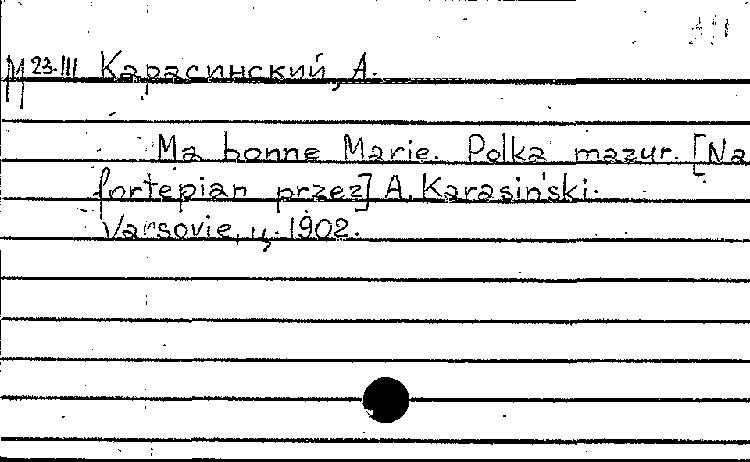 М 23-III Карасинский, А.
Ma bonne Marie. Polka mazur. [Na
fortepian przez] A. Karasiński.
Varsovie, ц. 1902.